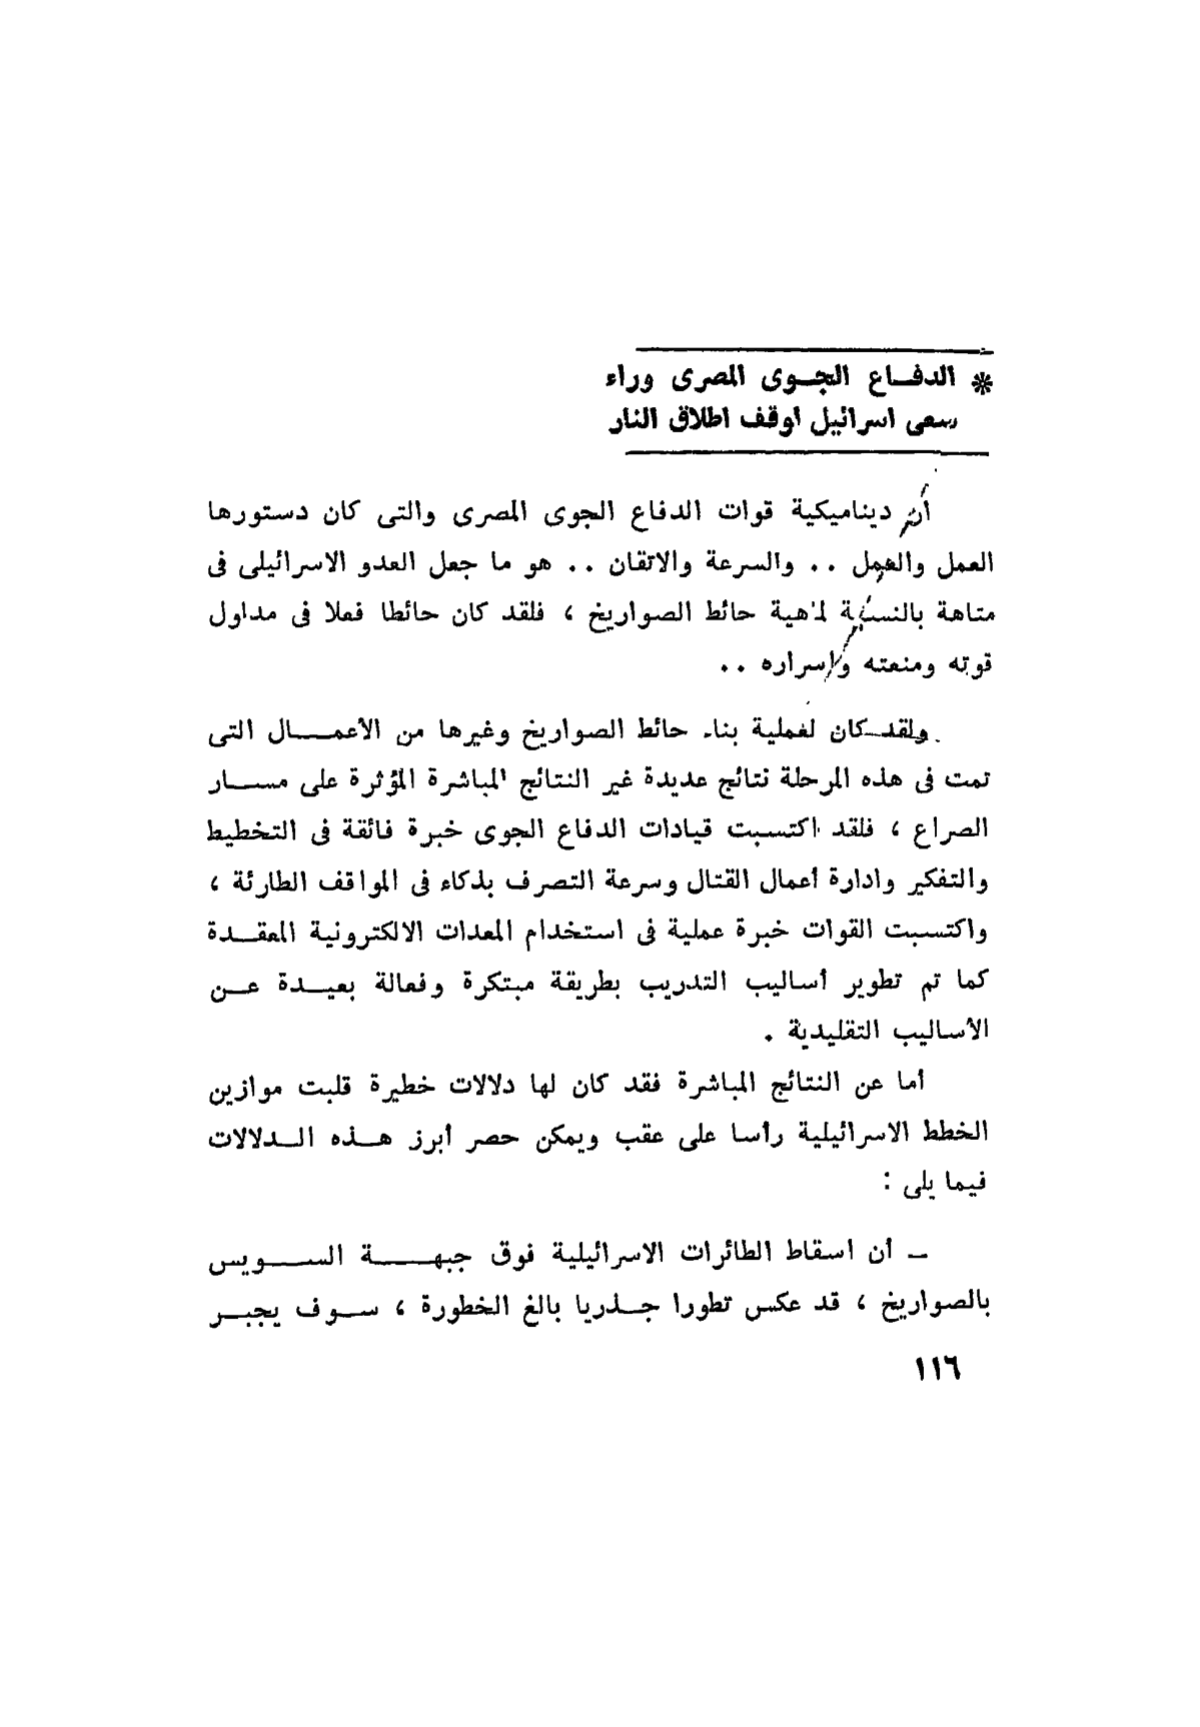 * الدفاع الجوى المصرى وراء
سعى اسرائيل لوقف اطلاق النار
أن ديناميكية قوات الدفاع الجوى المصرى والتى كان دستورها
العمل والعمل .. والسرعة والاتقان .. هو ما جعل العدو الاسرائيلى فى
متاهة بالنسبة لماهية حائط الصواريخ ، فلقد كان حائطا فعلا فى مدلول
قوته ومنعته وأسراره ..
ولقد كان لعملية بناء حائط الصواريخ وغيرها من الأعمال التى
تمت فى هذه المرحلة نتائج عديدة غير النتائج المباشرة المؤثرة على مسار
الصراع ، فلقد اكتسبت قيادات الدفاع الجوى خبرة فائقة فى التخطيط
والتفكير وادارة أعمال القتال وسرعة التصرف بذكاء فى المواقف الطارئة ،
واكتسبت القوات خبرة عملية فى استخدام المعدات الالكترونية المعقدة
كما تم تطوير أساليب التدريب بطريقة مبتكرة وفعالة بعيدة عن
الأساليب التقليدية .
أما عن النتائج المباشرة فقد كان لها دلالات خطيرة قلبت موازين
الخطط الاسرائيلية رأسا على عقب ويمكن حصر أبرز هذه الدلالات
فيما يلى :
– أن اسقاط الطائرات الاسرائيلية فوق جبهة السويس
بالصواريخ ، قد عكس تطورا جذريا بالغ الخطورة ، سوف يجبر
١١٦